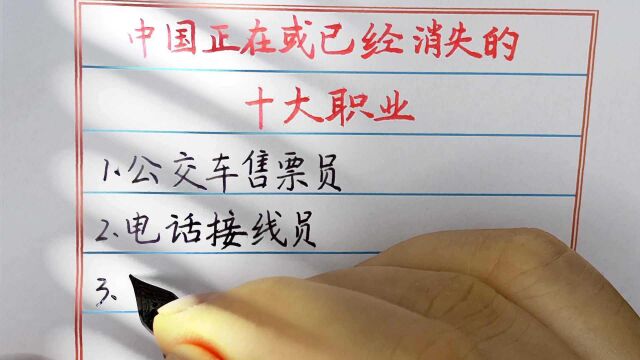 中国正在或已经消失的
十大职业
1.公交车售票员
2.电话接线员
3.